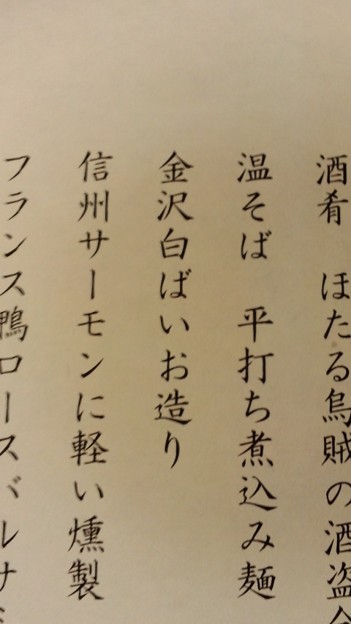 酒肴　ほたる烏賊の酒盗
温そば　平打ち煮込み麺
金沢白ばいお造り
信州サーモンに軽い燻製
フランス鴨ロースバルサ